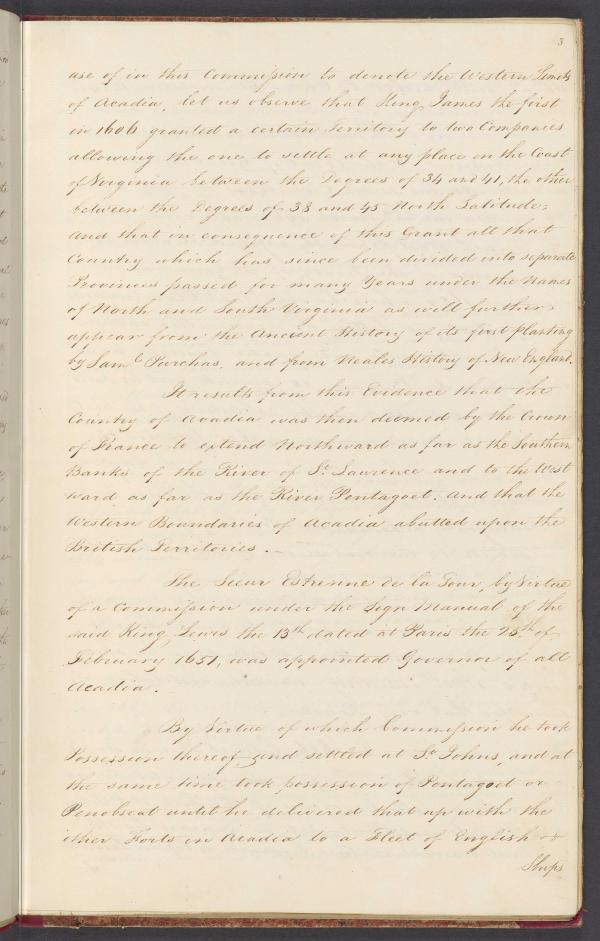 3
use of in this Commission to denote the Western Limits
of Acadia, let us observe that King James the first
in 1606 granted a certain Territory to two Companies
allowing the one to settle at any place on the Coast
of Virginia between the Degrees of 34 and 41, the other
between the Degrees of 38 and 45 North Latitude:
And that in consequence of this Grant all that
Country which has since been divided into separate
Provinces passed for many Years under the Names
of North and South Virginia as will further
appear from the Ancient History of its first planting
by Saml. Purchas, and from Neales History of New England.
It results from this Evidence that the
Country of Acadia was then deemed by the Crown
of France to extend Northward as far as the Southern
Banks of the River of St. Lawrence and to the West
ward as far as the River Pentagoet. And that the
Western Boundaries of Acadia abutted upon the
British Territories.
The Sieur Estienne de la Tour, by Virtue
of a Commission under the Sign Manual of the
said King Lewis the 13th dated at Paris the 25th of
February 1651, was appointed Governor of all
Acadia.
By Virtue of which Commission he took
Possession thereof and settled at St. Johns, and at
the same time took possession of Pentagoet or
Penobscat until he delivered that up with the
other Forts in Acadia to a Fleet of English
Ships